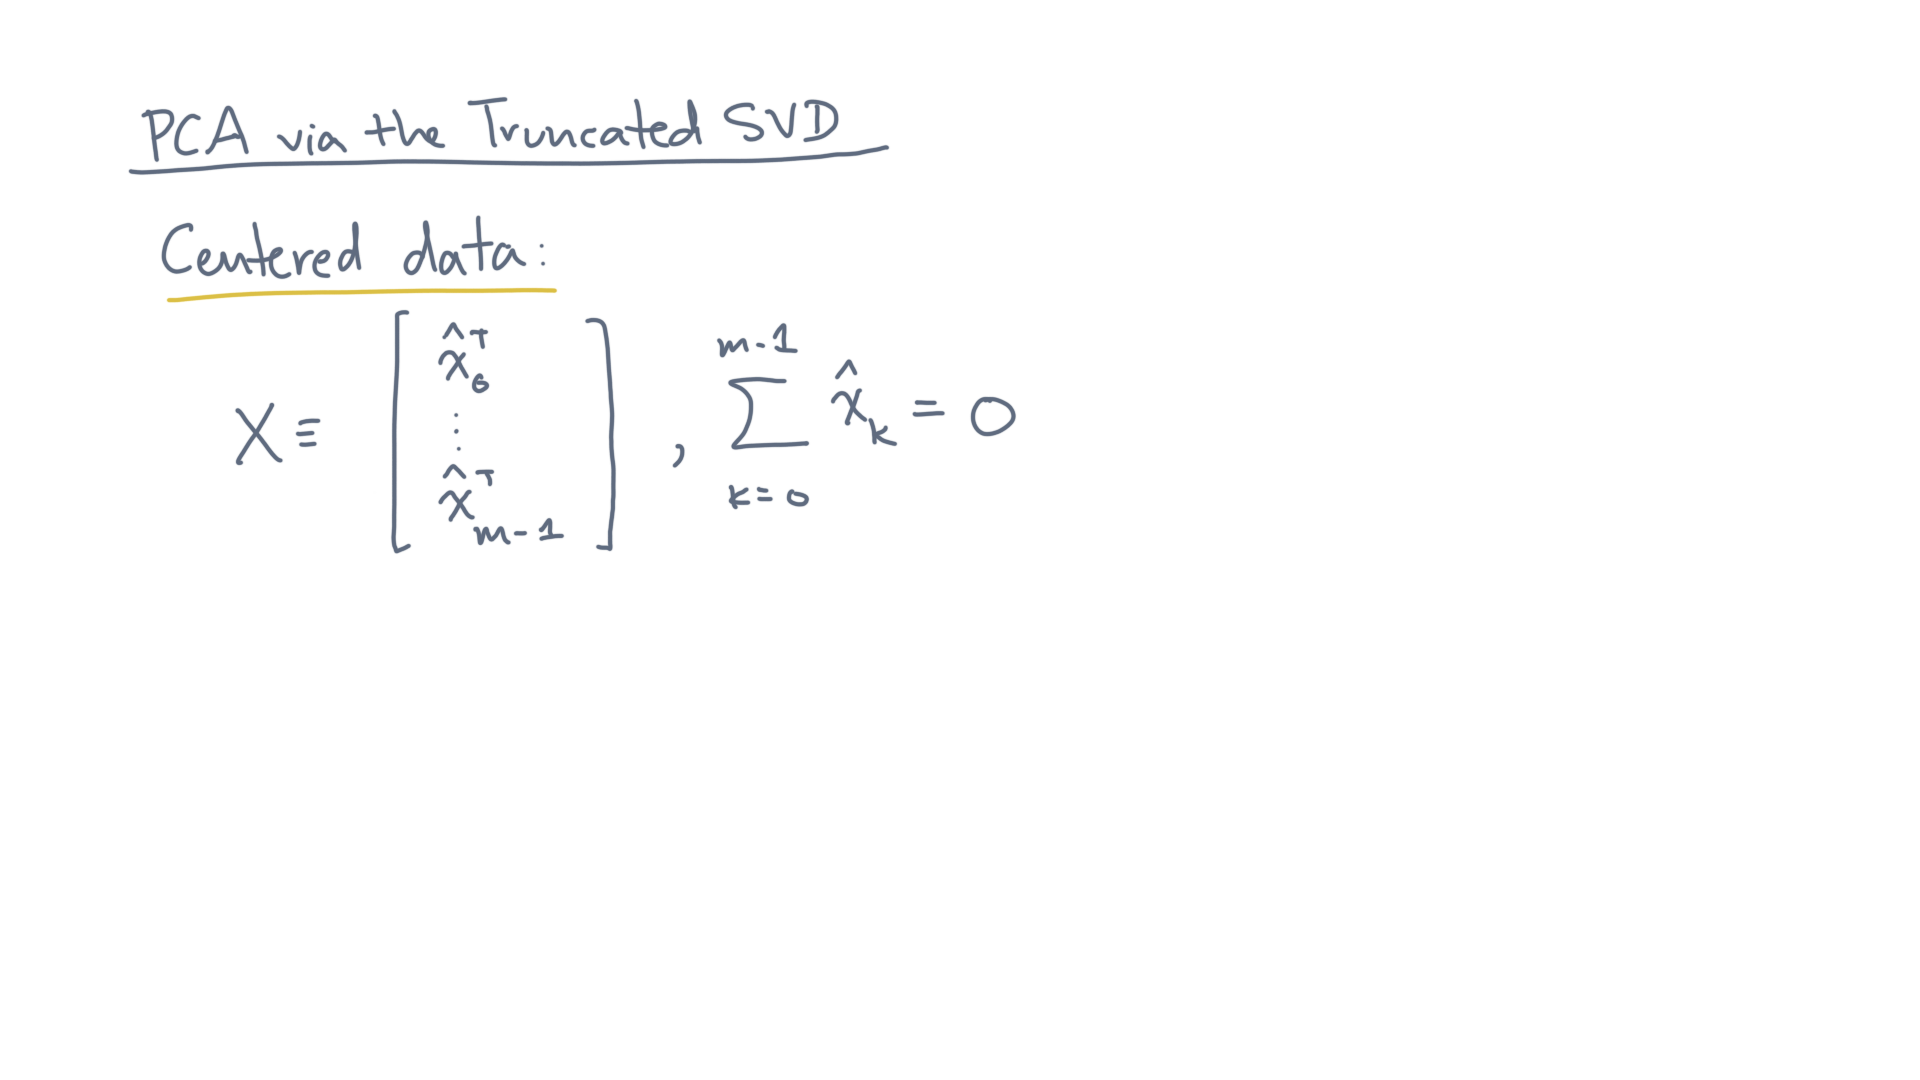 PCA via the Truncated SVD
Centered data:
X ≡ [ x̂₀ᵀ ⋮ x̂ₘ₋₁ᵀ ] , ∑ₖ₌₀ᵐ⁻¹ x̂ₖ = 0